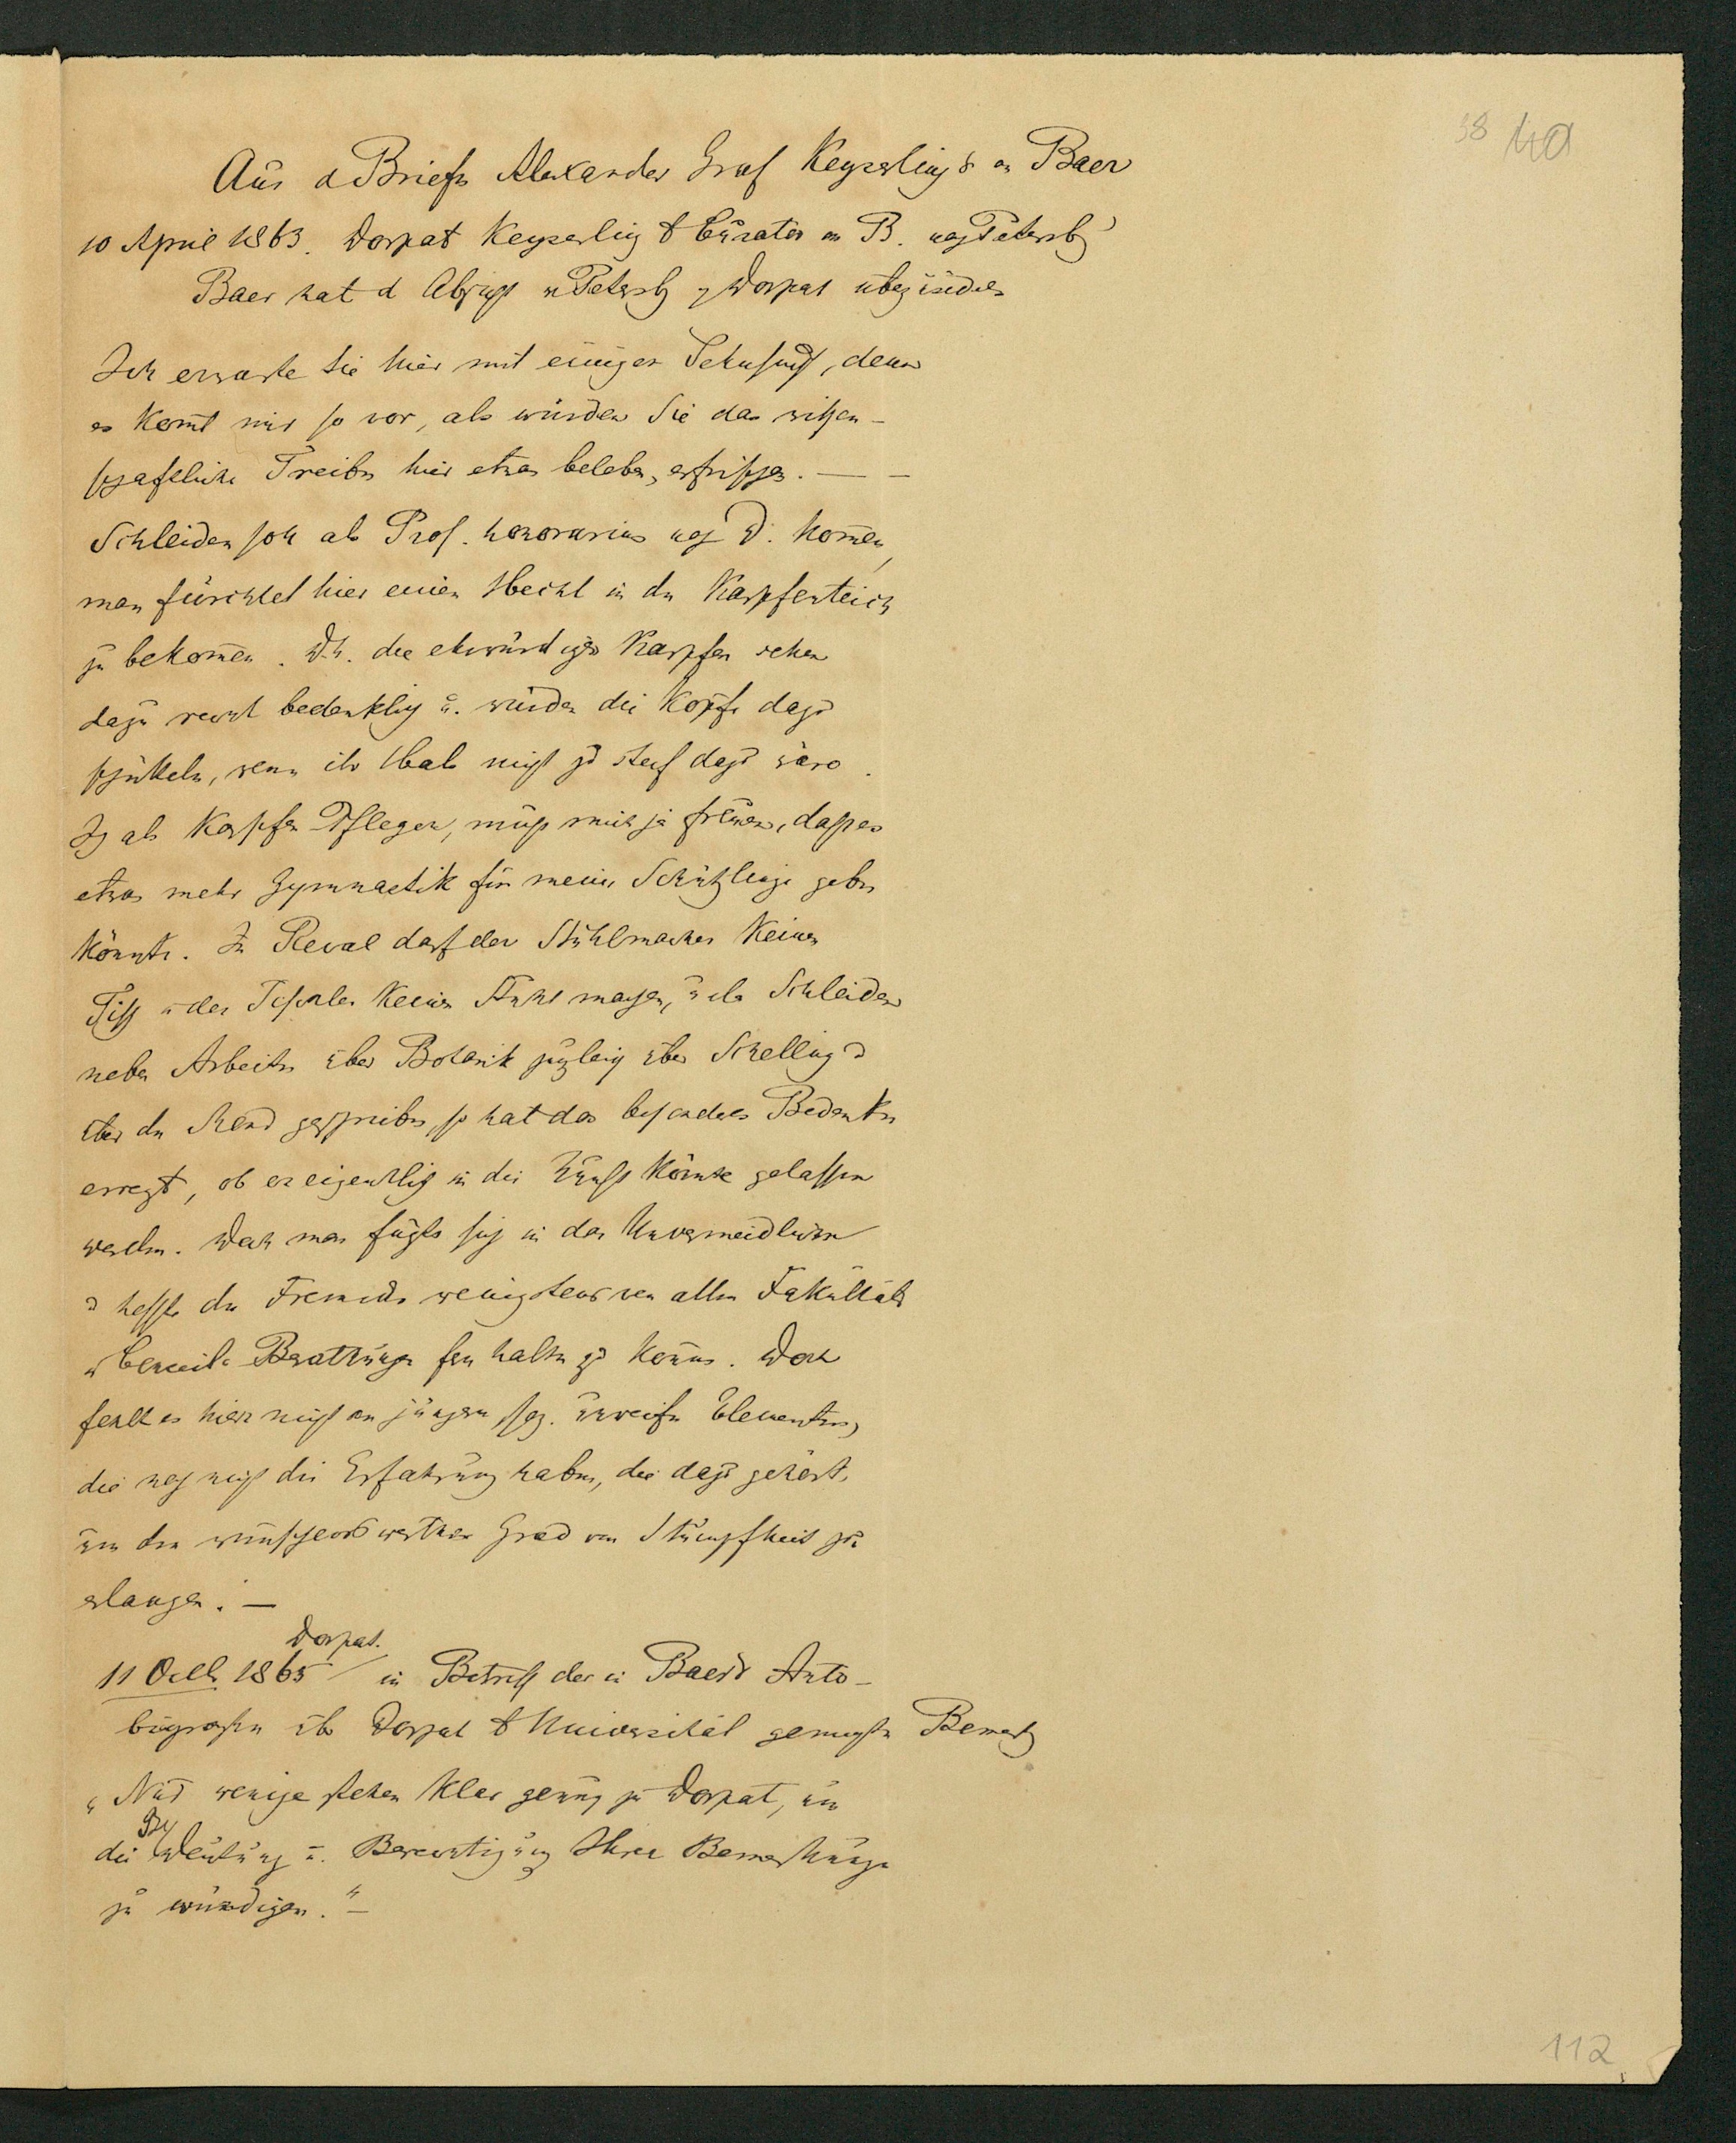 38 40
Aus d Briefen Alexander Graf Keyserlings an Baer
10 April 1863. Dorpat Keyserling d Curator an B. nach Petersbg
Baer hat d Absicht v Petersbg n Dorpat überzusiedeln
Ich erwarte Sie hier mit einiger Sehnsucht, denn
es komt mir so vor, als würden Sie das wissen-
schaftliche Treiben hier etwas beleben, erfrischen. — —
Schleiden soll als Prof. honorarius nach D. komen,
man fürchtet hier einen Hecht in den Karpfenteich
zu bekomen. D.h. die ehrwürdigen Karpfen sehen
dazu recht bedenklich u. würden die Köpfe dazu
schütteln, wenn ihr Hals nicht zu steif dazu wäre.
Ich als Karpfen Pfleger, muss mich ja freuen, dass es
etwas mehr Gymnastik für meine Schützlinge geben
könnte. In Reval darf der Stuhlmacher keinen
Tisch u der Tischler keinen Stuhl machen, u da Schleiden
neben Arbeiten über Botanik zugleich über Schelling u
über den Mond geschrieben, so hat das besonders Bedenken
erregt, ob er eigentlich in die Zunft könnte gelassen
werden. Doch man fügte sich in das Unvermeidliche
u hoffte den Fremden wenigstens von allen Fakultäts
u Conseils Berathungen fern halten zu können. Doch
fehlt es hier nicht an jungen, sog. unreifen Elementen,
die noch nicht die Erfahrung haben, die dazu gehört,
um den wünschenswerthen Grad von Stumpfheit zu
erlangen. —
Dorpat.
11 Octb. 1865 in Betreff der in Baers Auto-
biographie über Dorpat d Universität gemachten Bemerkg
„Nur wenige stehen klar genug zu Dorpat, um
die Deutung u. Berechtigung Ihrer Bemerkungen
zu würdigen." —
112